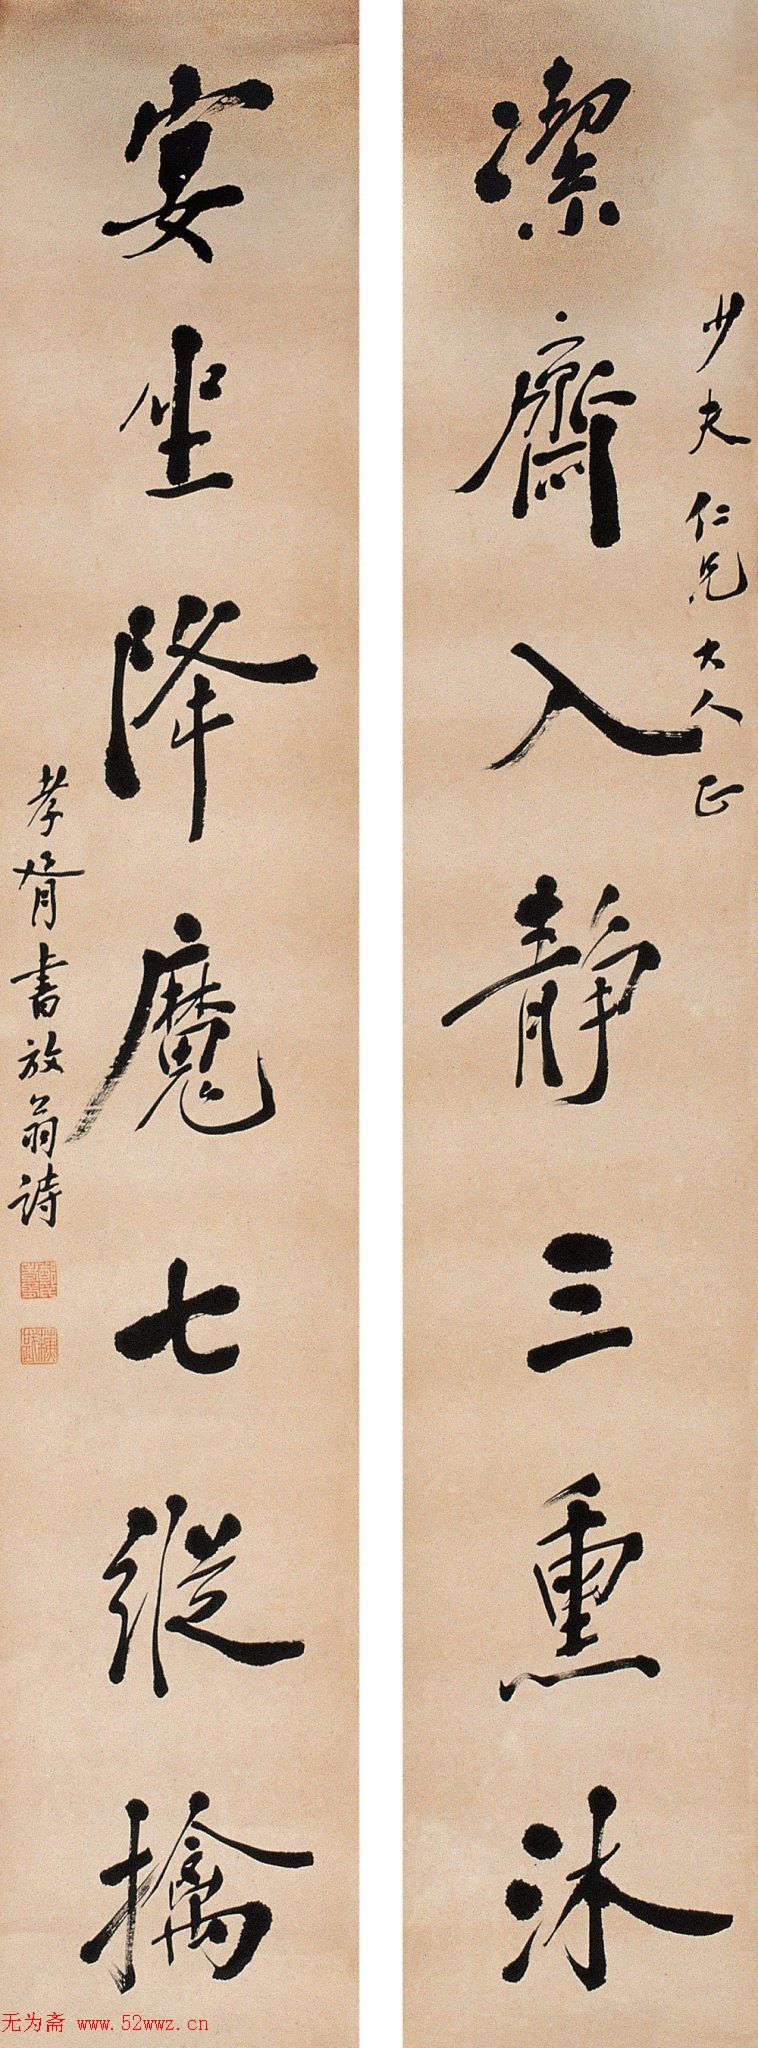 少夫仁兄大人正
潔齋入静三熏沐
宴坐降魔七縱擒
孝胥書放翁詩
无为斋 www.52wwz.cn